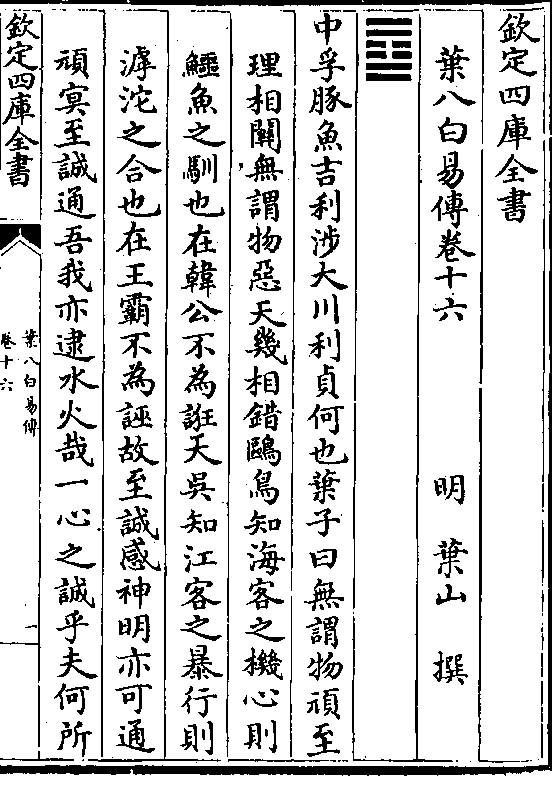 欽定四庫全書
葉八白易傳卷十六
明 葉山 撰
䷼
中孚豚魚吉利涉大川利貞何也葉子曰無謂物頑至
理相關無謂物惡天幾相錯鷗鳥知海客之機心則
鱷魚之馴也在韓公不為誑天吳知江客之暴行則
滹沱之合也在王霸不為誣故至誠感神明亦可通
頑冥至誠通吾我亦逮水火哉一心之誠乎夫何所
欽定四庫全書
葉八白易傳
卷十六
一